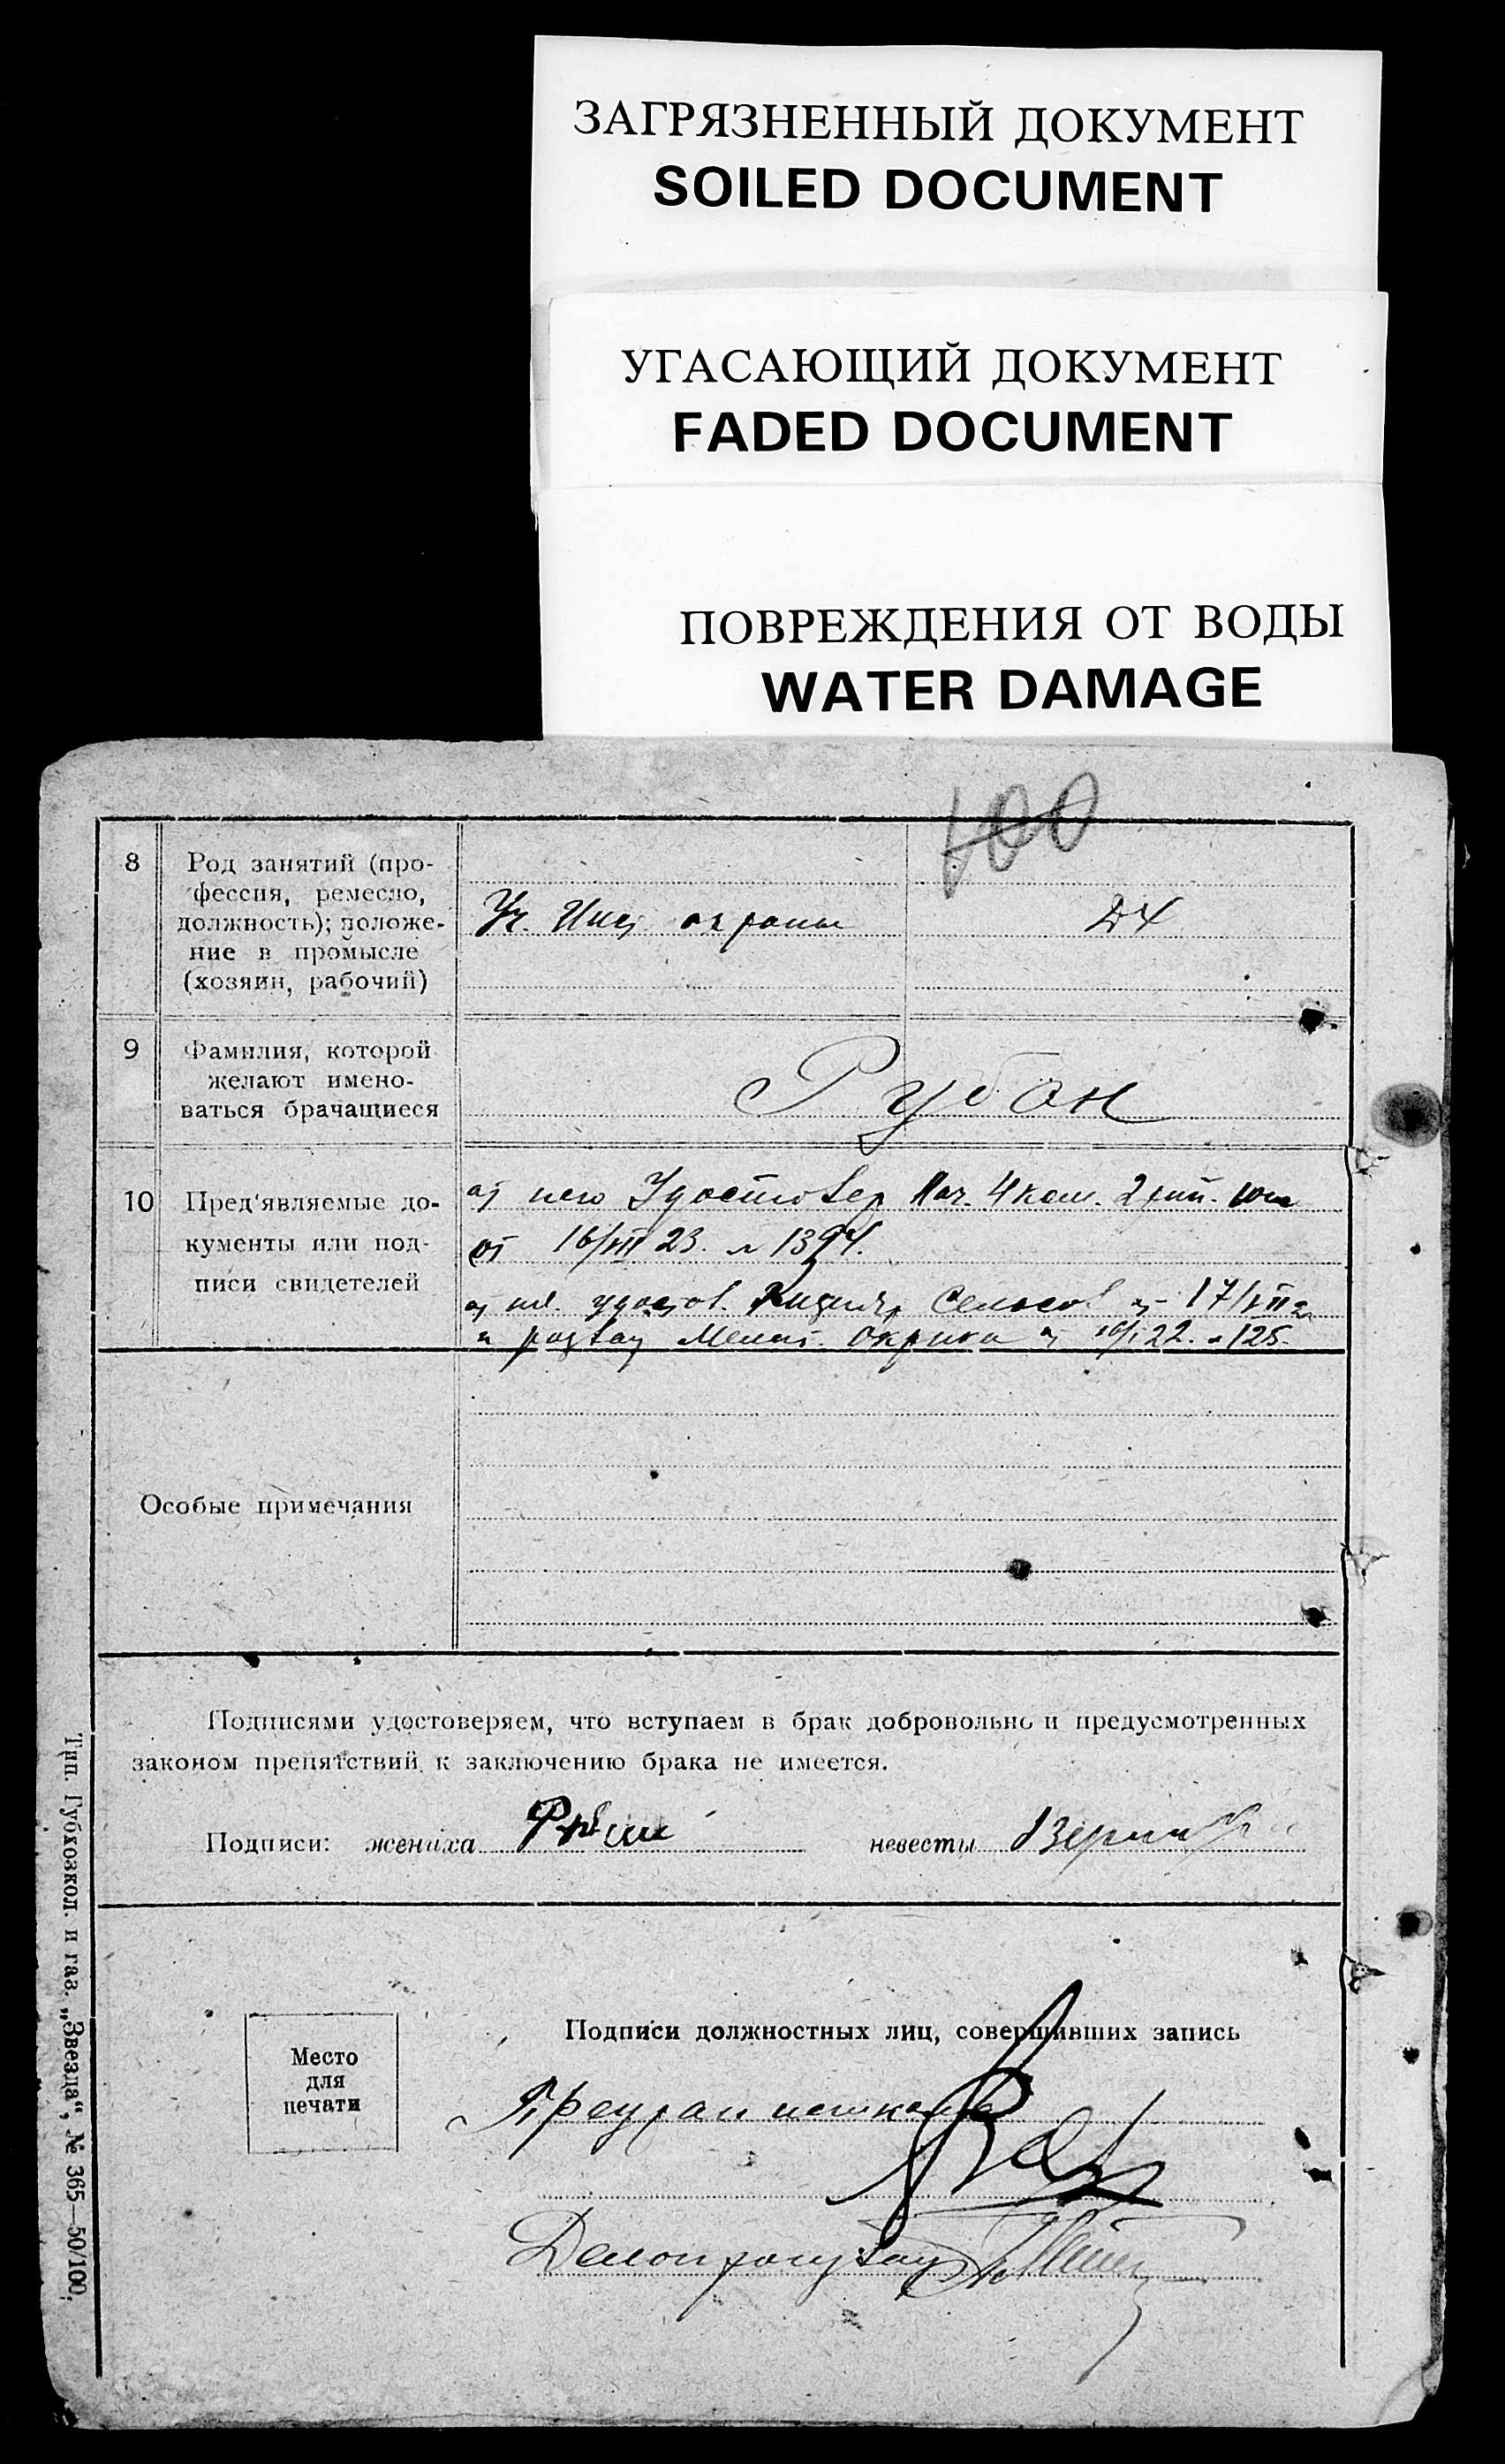 ЗАГРЯЗНЕННЫЙ ДОКУМЕНТ
SOILED DOCUMENT
УГАСАЮЩИЙ ДОКУМЕНТ
FADED DOCUMENT
ПОВРЕЖДЕНИЯ ОТ ВОДЫ
WATER DAMAGE
100
8 Род занятий (про-
фессия, ремесло,
должность); положе-
ние в промысле
(хозяин, рабочий)
охраны
ДХ
9 Фамилия, которой
желают имено-
ваться брачащиеся
Рубан
10 Пред'являемые до-
кументы или под-
писи свидетелей
от него Удостовер Нач. 4 ком. 2
от 16/VII 23. № 1394.
от удостов. Сельсов от 17/VII
и развод Мелит. Окрика от 22. № 125.
Особые примечания
Подписями удостоверяем, что вступаем в брак добровольно и предусмотренных
законом препятствий к заключению брака не имеется.
Подписи: жениха невесты
Место
для
печати
Подписи должностных лиц, совершивших запись
Делопроизвод
Тип. Губхозкол. и газ. „Звезда“, № 365—50/100.